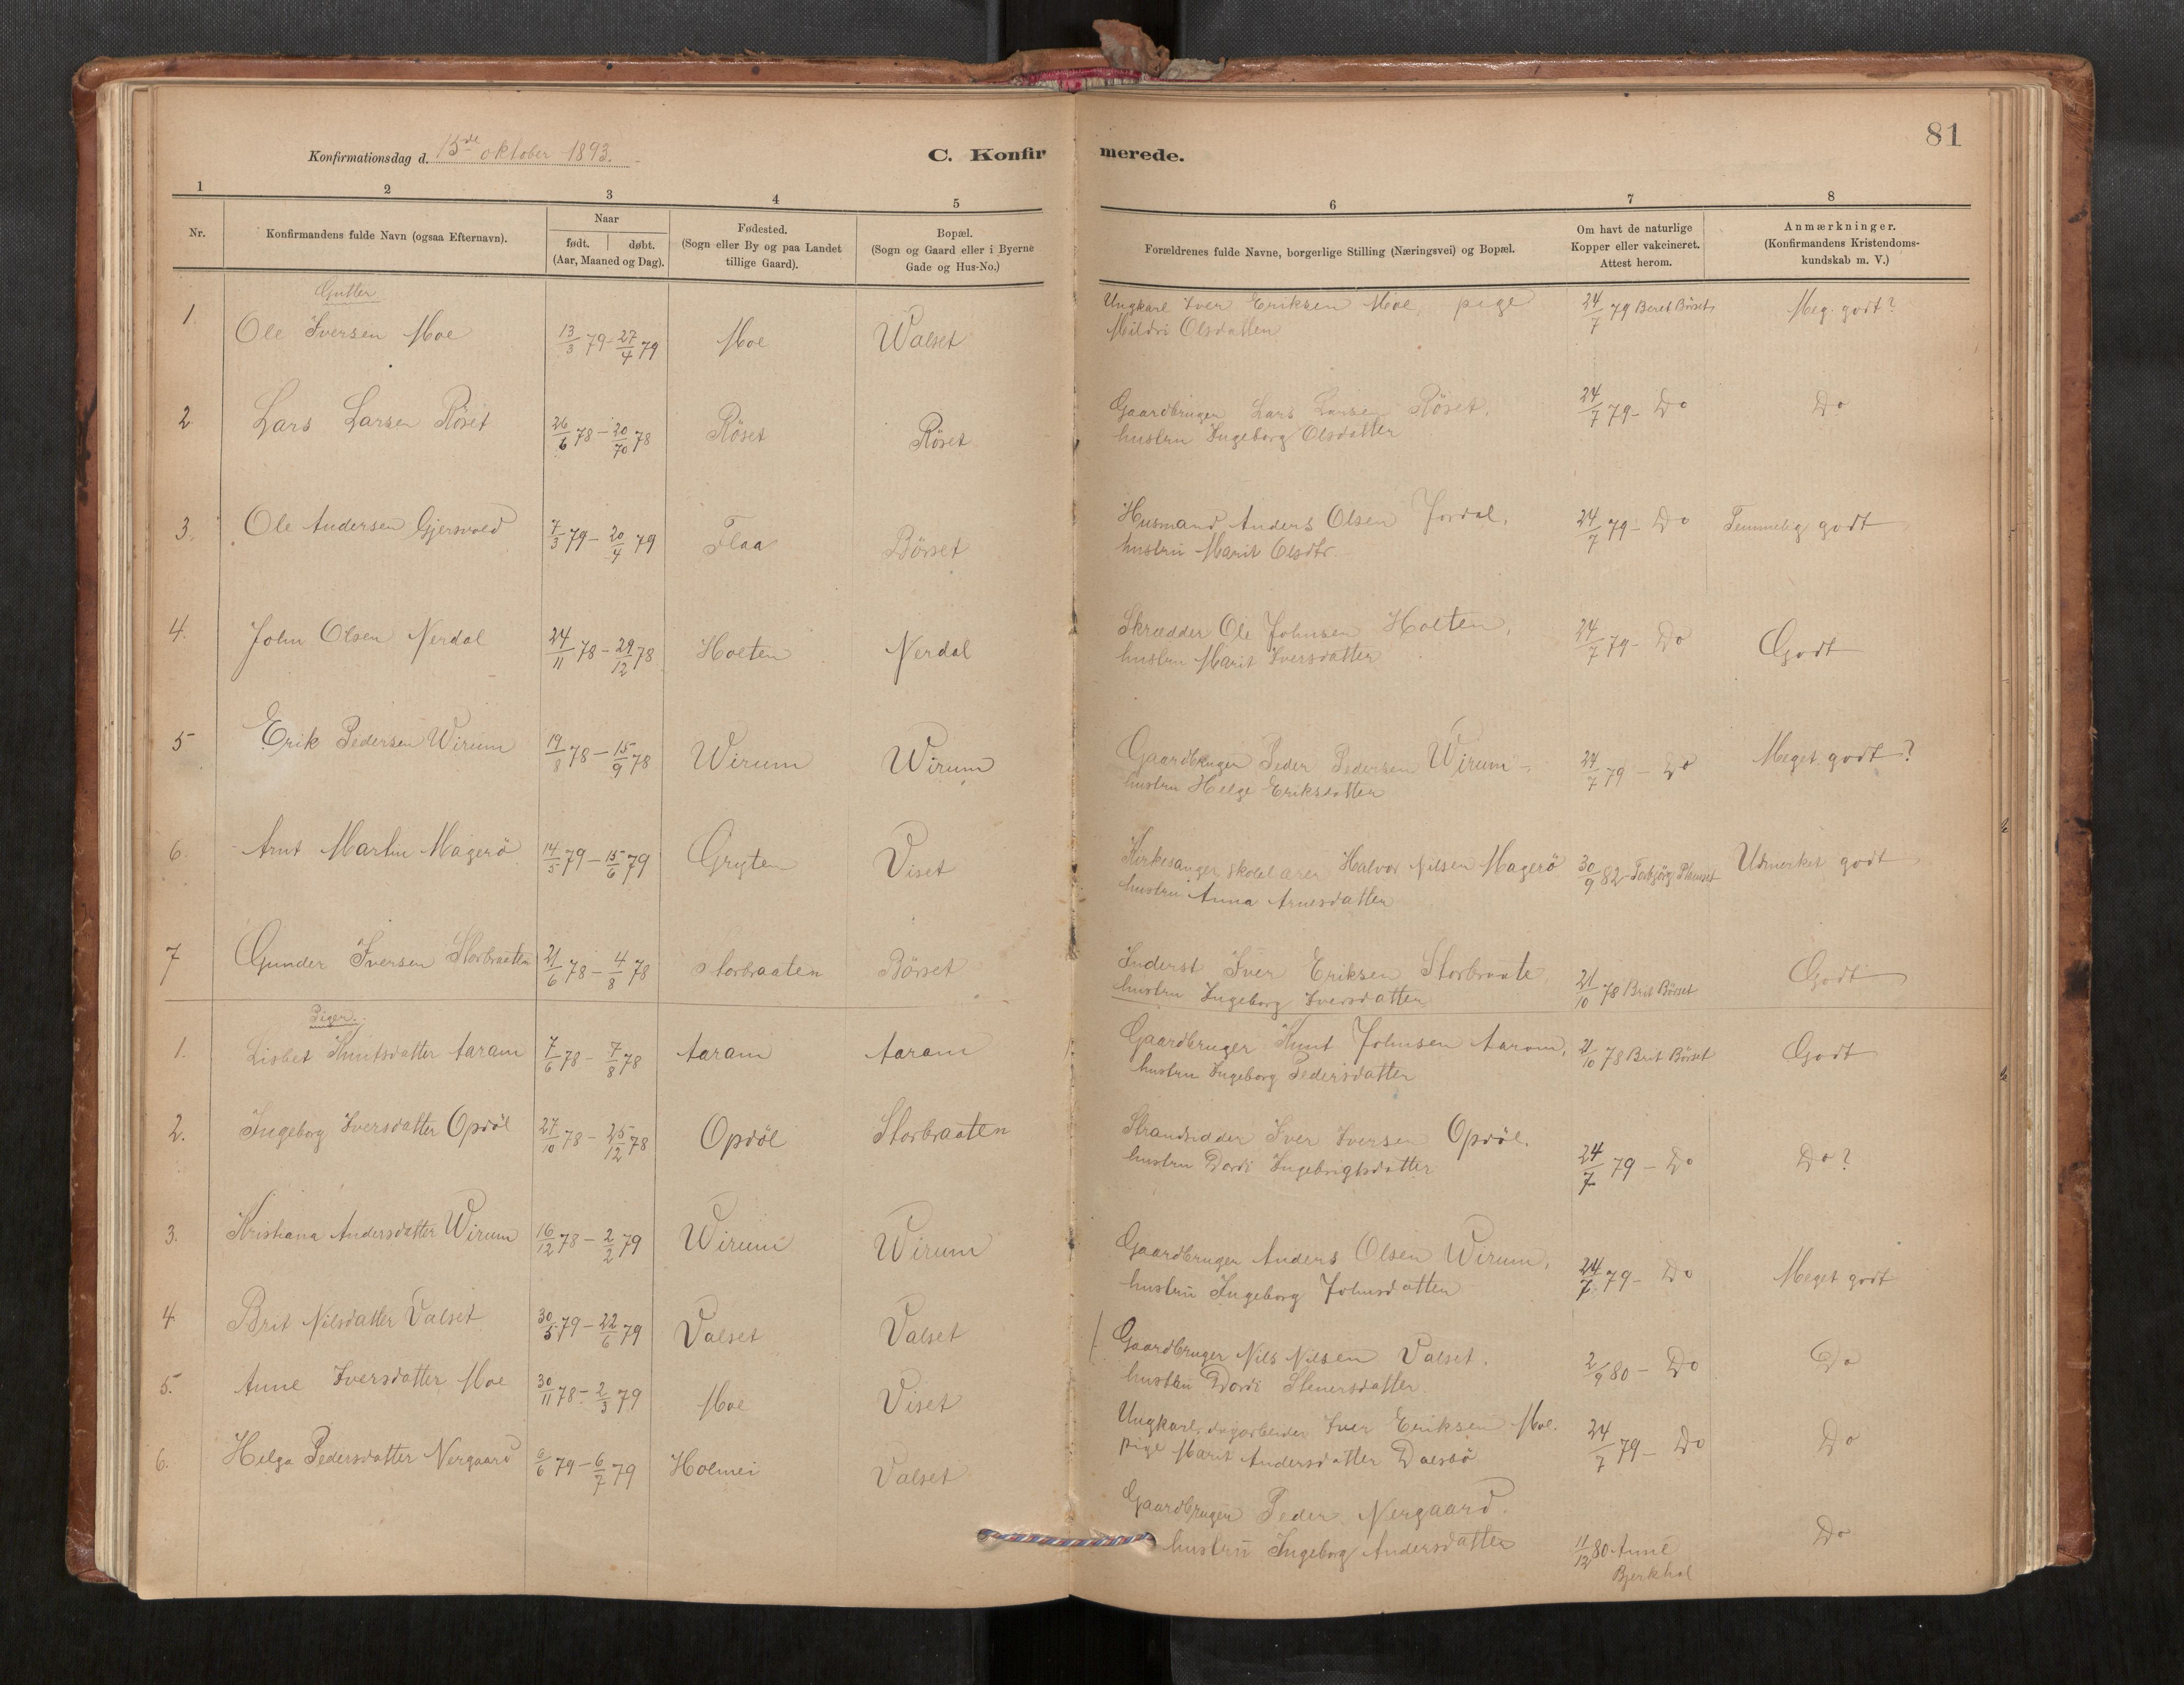 81
Konfirmationsdag d. 15de oktober 1893.
C. Konfirmerede.
1 2 3 4 5 6 7 8
Nr.
Konfirmandens fulde Navn (ogsaa Efternavn).
Naar
født. | døbt.
(Aar, Maaned og Dag).
Fødested.
(Sogn eller By og paa Landet
tillige Gaard).
Bopæl.
(Sogn og Gaard eller i Byerne
Gade og Hus-No.)
Forældrenes fulde Navne, borgerlige Stilling (Næringsvei) og Bopæl.
Om havt de naturlige
Kopper eller vakcineret.
Attest herom.
Anmærkninger.
(Konfirmandens Kristendoms-
kundskab m. V.)
Gutter
1. Ole Iversen Moe 13/3 79 - 27/4 79 Moe Walset Ungkarl Iver Eriksen Moe, pige 24/7 79 Beret Börset Meg. godt?
Mildri Olsdatter
2. Lars Larsen Röset 26/6 78 - 20/10 78 Röset Röset Gaardbruger Lars Larsen Röset, 24/7 79 - Do Do
hustru Ingeborg Olsdatter
3. Ole Andersen Gjersvold 7/3 79 - 20/4 79 Flaa Börset Husmand Anders Olsen Jordal, 24/7 79 - Do Temmelig godt
hustru Marit Olsdtr.
4. John Olsen Nerdal 24/11 78 - 29/12 78 Holten Nerdal Skrædder Ole Johnsen Holten, 24/7 79 - Do Godt
hustru Marit Iversdatter
5 Erik Pedersen Wirum 19/8 78 - 15/9 78 Wirum Wirum Gaardbruger Peder Pedersen Wirum - 24/7 79 - Do Meget godt?
hustru Helge Eriksdatter
6 Arnt Martin Magerö 14/5 79 - 15/6 79 Gryten Viset Kirkesanger, skolelærer Halvor Nilsen Magerö 30/9 82 - Torbjörg Plamset Udmerket godt
hustru Anna Arnesdatter
7 Gunder Iversen Storbraaten 21/6 78 - 4/8 78 Storbraaten Börset Inderst Iver Eriksen Storbraate 21/10 78 Brit Börset Godt
hustru Ingeborg Iversdatter
Piger.
1. Lisbet Knutsdatter Aaram 7/6 78 - 7/8 78 Aaram Aaram Gaardbruger Knut Johnsen Aaram, 21/10 78 Brit Börset Godt
hustru Ingeborg Pedersdatter
2. Ingeborg Iversdatter Opdöl 27/10 78 - 25/12 78 Opdöl Storbraaten Strandsidder Iver Iversen Opdöl. 24/7 79 - Do Do?
hustru Dordi Ingebrigtsdatter
3. Kristiana Andersdatter Wirum 16/12 78 - 2/2 79 Wirum Wirum Gaardbruger Anders Olsen Wirum, 24/7 79 - Do Meget godt
hustru Ingeborg Johnsdatter
4 Brit Nilsdatter Valset 30/5 79 - 22/6 79 Valset Valset Gaardbruger Nils Nilsen Valset. 2/9 80 - Do Do
hustru Dordi Stenersdatter
5. Anne Iversdatter Moe 30/11 78 - 2/3 79 Moe Viset Ungkarl, dagarbeider Iver Eriksen Moe. 24/7 79 - Do Do
pige Marit Andersdatter Dalsbö
6. Helga Pedersdatter Nergaard 6/6 79 - 6/7 79 Holmei Valset Gaardbruger Peder Nergaard.
hustru Ingeborg Andersdatter 11/12 80 Anne Do
Bjerkhol